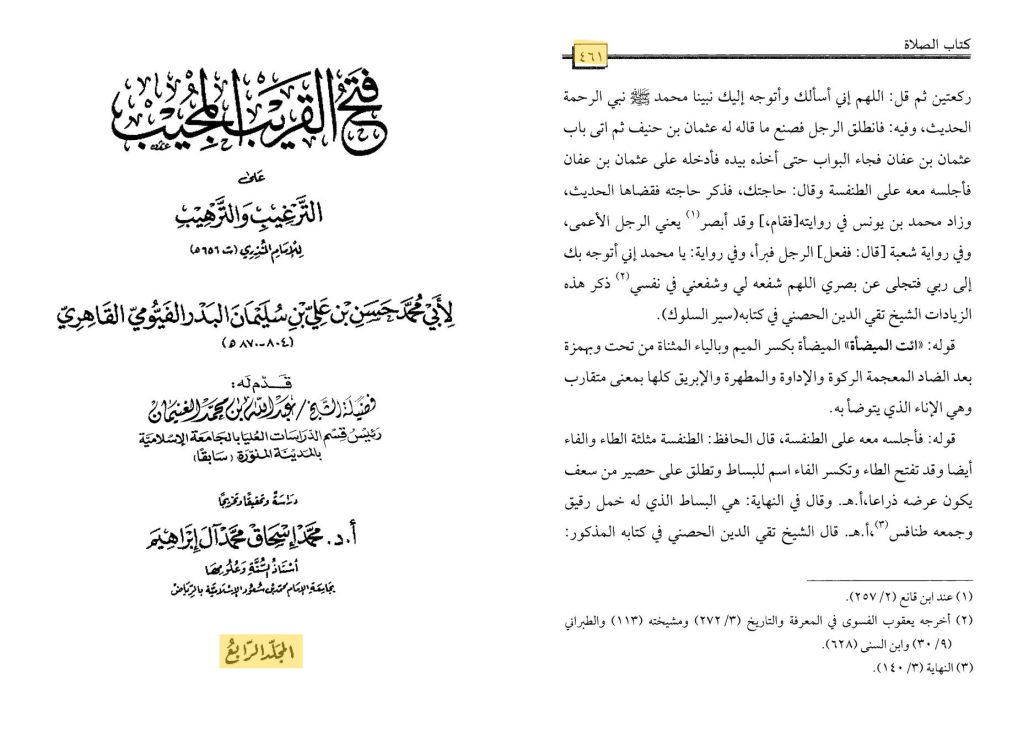 فَتْحُ القَرِيبِ المُجِيبِ
عَلىٰ
التَّرغِيبِ وَالتَّرهِيبِ
لِلإمَامِ المُنذِري (ت ٦٥٦ه)
لِأَبِي مُحَمَّد حَسَن بْن عَلِيّ بْن سُلَيْمَان البَدْر الفَيُّومِيّ القَاهِرِيّ
(٨٠٤-٨٧٠ه)
قَدَّمَ لَه:
فَضِيلَة الشَّيْخ/ عَبْد اللَّه بْن مُحَمَّد الغنيمَان
رَئِيسُ قِسْمِ الدِّرَاسَاتِ العُليَا بِالجَامِعَة الإِسْلَامِيَّة
بِالمَدِينَة المُنَوَّرَة (سَابِقًا)
دِرَاسَةً وَتَحقِيقًا وَتَخرِيجًا
أ.د. مُحَمَّد إِسْحَاق مُحَمَّد آل إِبْرَاهِيم
أُسْتَاذُ السُّنَّة وَعُلُومِهَا
بِجَامِعَة الإِمَام مُحَمَّد بْن سُعُود الإِسْلَامِيَّة بِالرِّيَاض
المُجَلَّد الرَّابِعُ
كتاب الصلاة
٤٦١
ركعتين ثم قل: اللهم إني أسألك وأتوجه إليك نبينا محمد ﷺ نبي الرحمة
الحديث، وفيه: فانطلق الرجل فصنع ما قاله له عثمان بن حنيف ثم اتى باب
عثمان بن عفان فجاء البواب حتى أخذه بيده فأدخله على عثمان بن عفان
فأجلسه معه على الطنفسة وقال: حاجتك، فذكر حاجته فقضاها الحديث،
وزاد محمد بن يونس في روايته[فقام،] وقد أبصر(١) يعني الرجل الأعمى،
وفي رواية شعبة [قال: ففعل] الرجل فبرأ، وفي رواية: يا محمد إني أتوجه بك
إلى ربي فتجلى عن بصري اللهم شفعه لي وشفعني في نفسي(٢) ذكر هذه
الزيادات الشيخ تقي الدين الحصني في كتابه(سير السلوك).
قوله: «ائت الميضأة» الميضأة بكسر الميم وبالياء المثناة من تحت وبهمزة
بعد الضاد المعجمة الركوة والإداوة والمطهرة والإبريق كلها بمعنى متقارب
وهي الإناء الذي يتوضأ به.
قوله: فأجلسه معه على الطنفسة، قال الحافظ: الطنفسة مثلثة الطاء والفاء
أيضا وقد تفتح الطاء وتكسر الفاء اسم للبساط وتطلق على حصير من سعف
يكون عرضه ذراعا،أ.هـ. وقال في النهاية: هي البساط الذي له خمل رقيق
وجمعه طنافس(٣)،أ.هـ. قال الشيخ تقي الدين الحصني في كتابه المذكور:
(١) عند ابن قانع (٢/ ٢٥٧).
(٢) أخرجه يعقوب الفسوى في المعرفة والتاريخ (٣/ ٢٧٢) ومشيخته (١١٣) والطبراني
(٩/ ٣٠) وابن السنى (٦٢٨).
(٣) النهاية (٣/ ١٤٠).